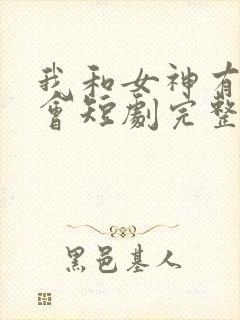 我和女神有
會短劇完整
黑邑基人